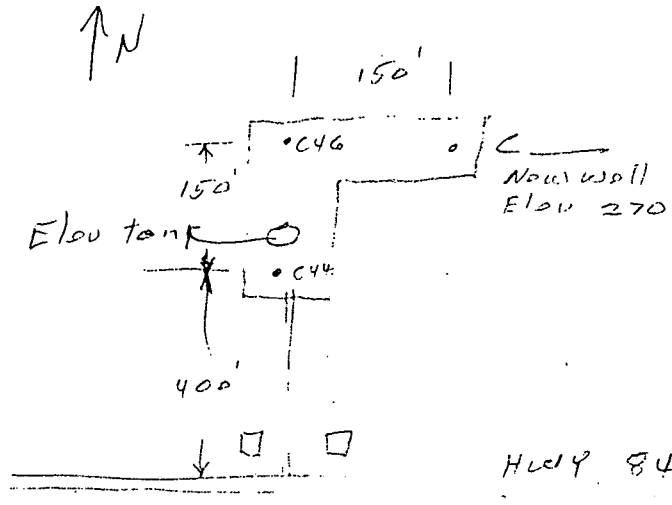 N
150'
C46
C
150'
New well
Elev 270
Elev tank
C44
400'
Hwy 84